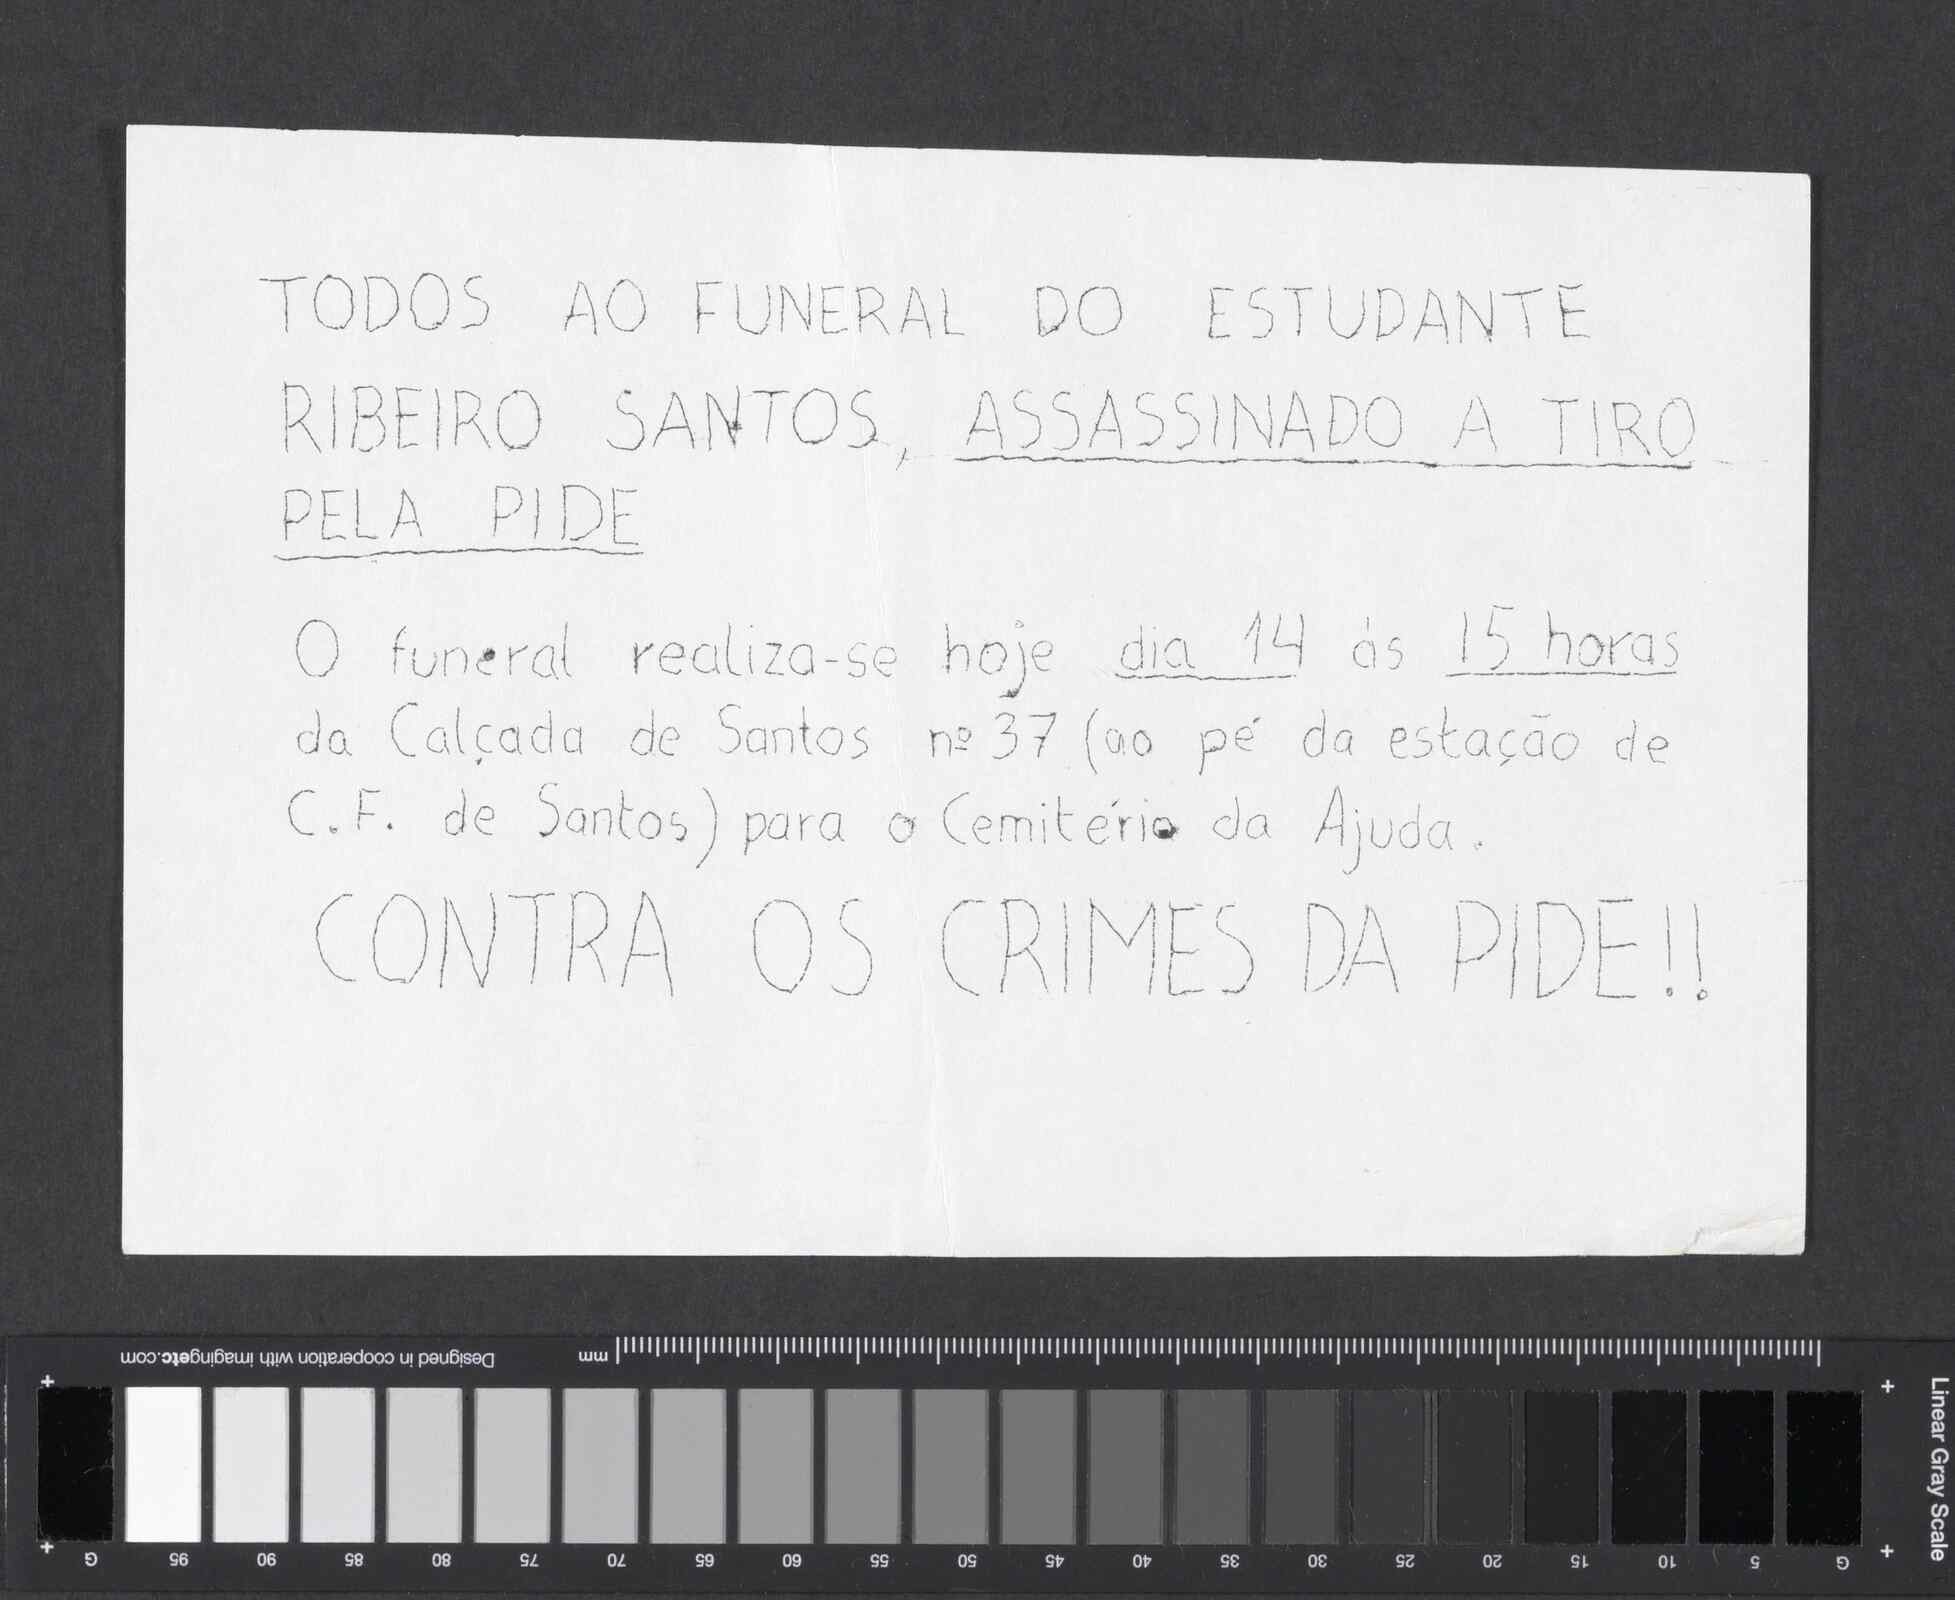 TODOS AO FUNERAL DO ESTUDANTE
RIBEIRO SANTOS, ASSASSINADO A TIRO
PELA PIDE
O funeral realiza-se hoje dia 14 ás 15 horas
da Calçada de Santos nº 37 (ao pé da estação de
C.F. de Santos) para o Cemitério da Ajuda.
CONTRA OS CRIMES DA PIDE!!
mm
Designed in cooperation with imagingetc.com
G 95 90 85 80 75 70 65 60 55 50 45 40 35 30 25 20 15 10 5 G
Linear Gray Scale